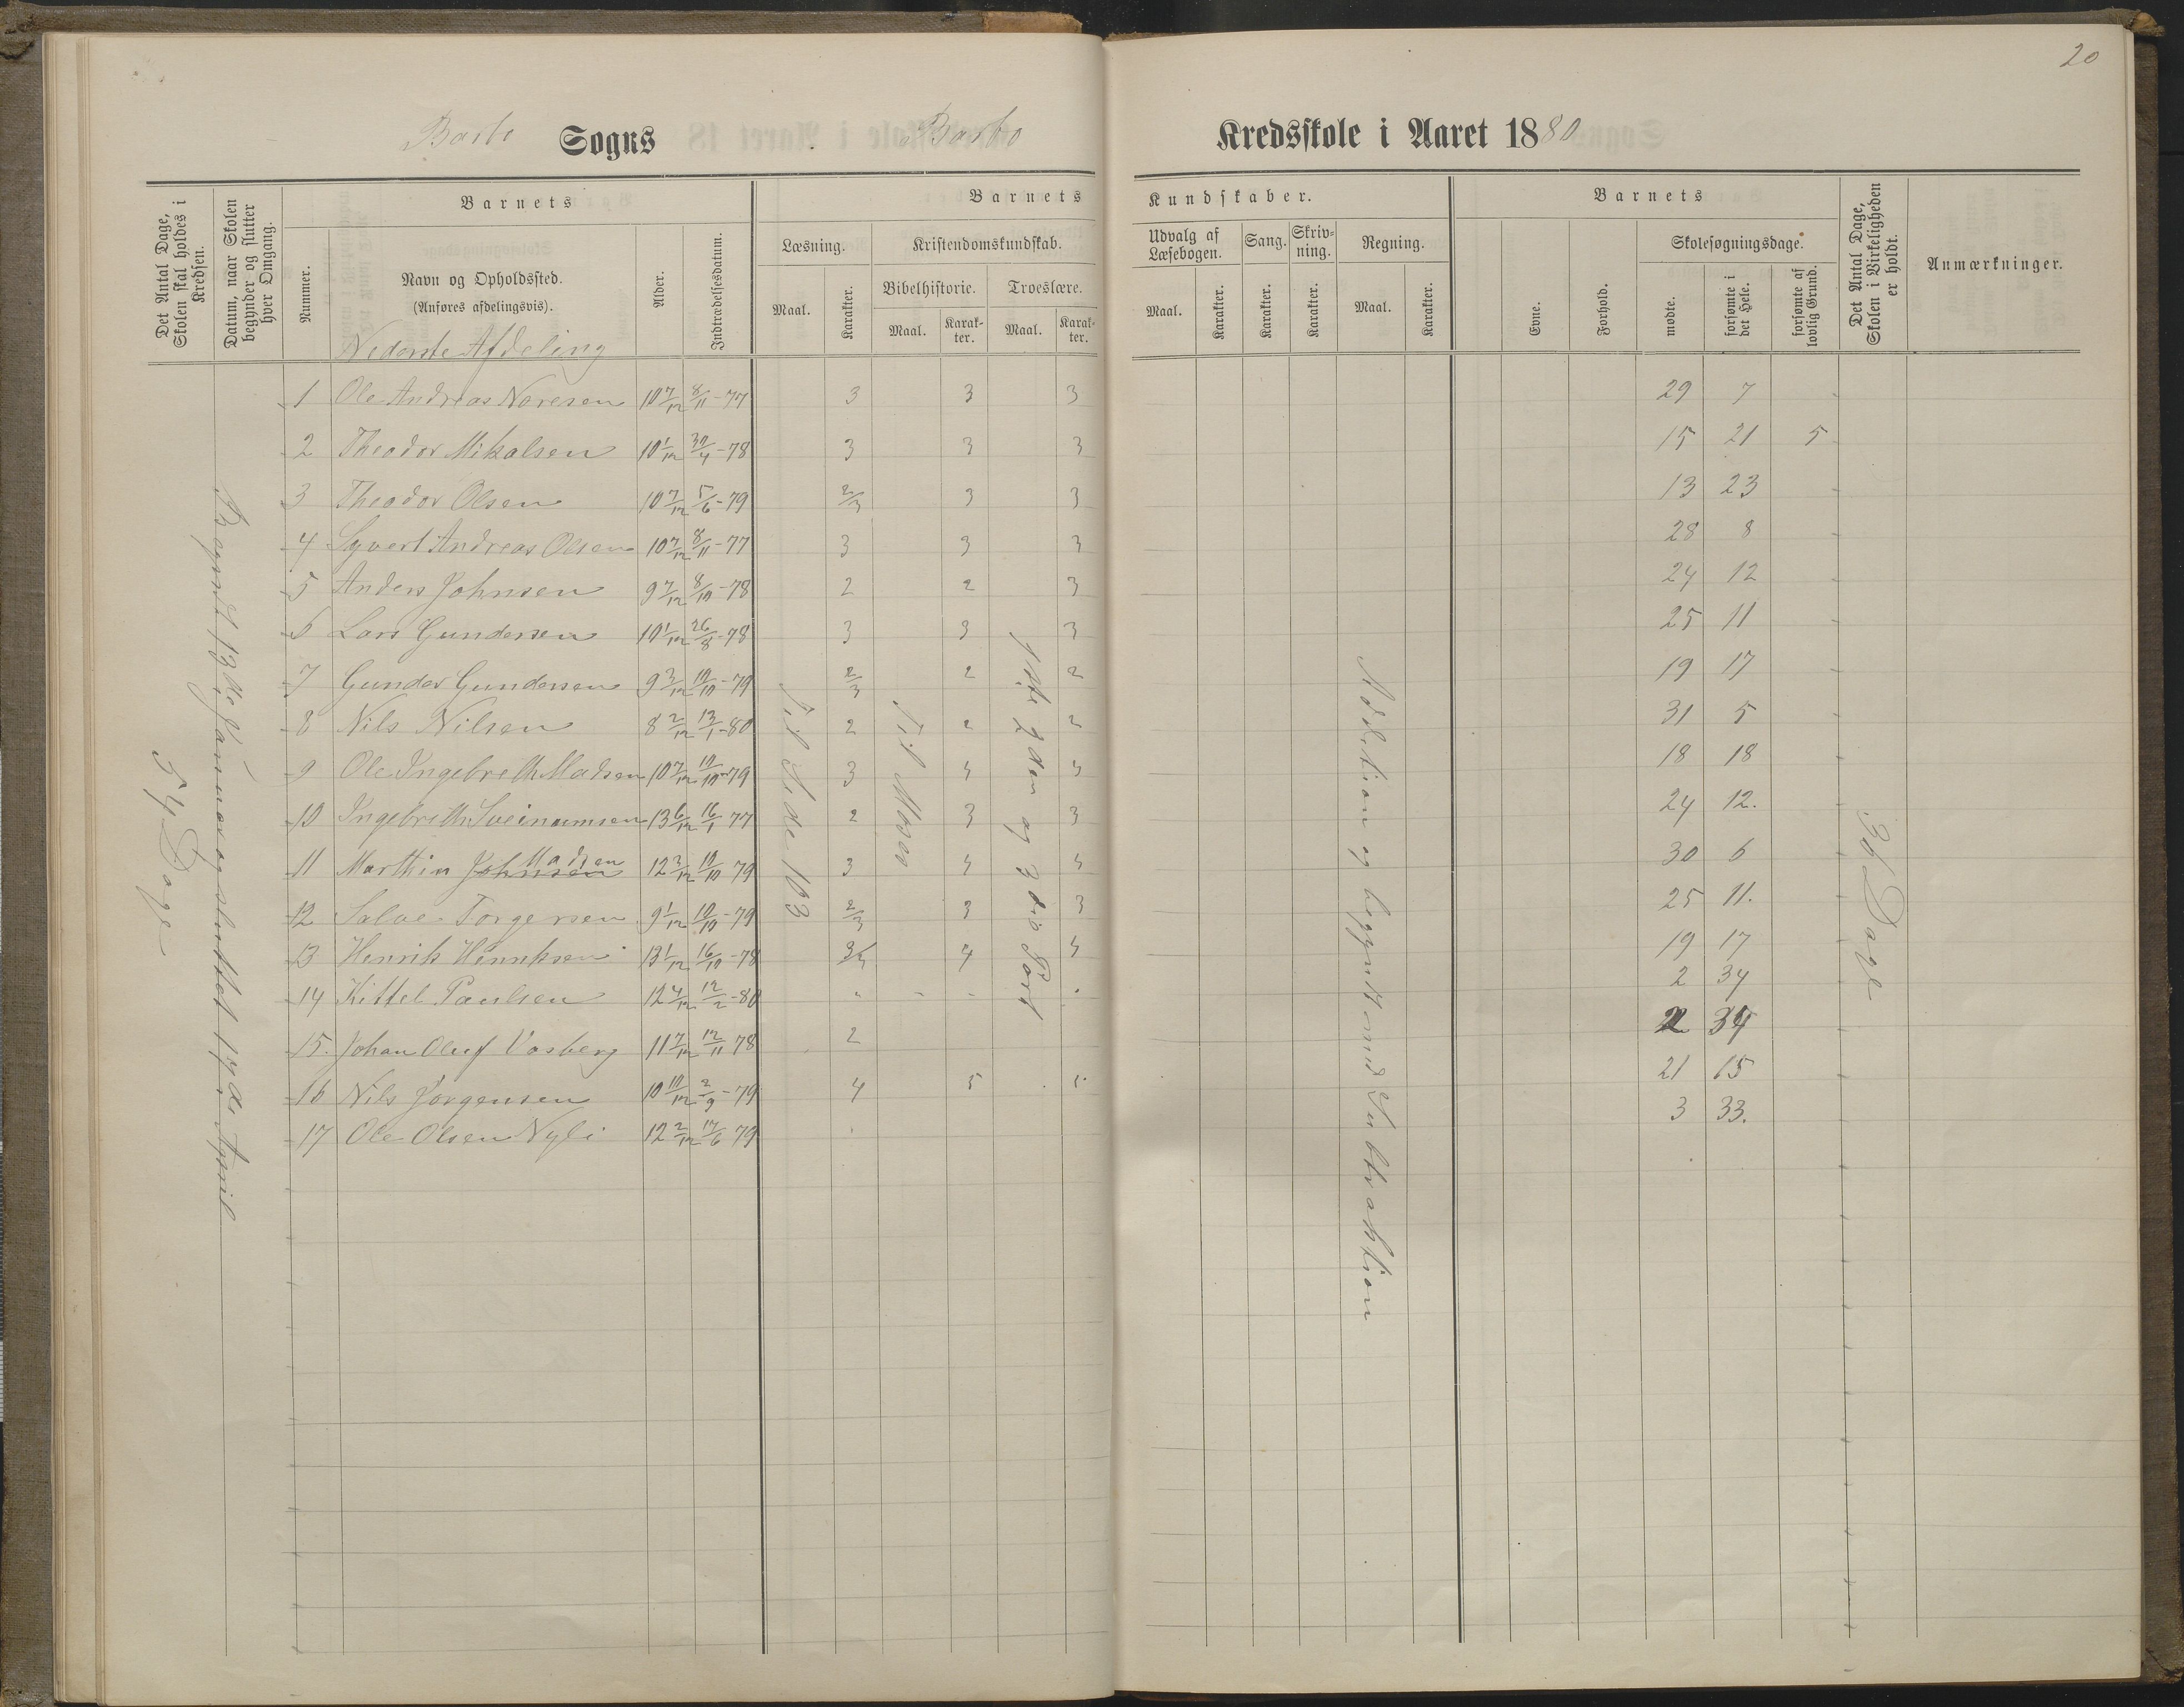 20
Barbo Sogns Barbo Kredsskole i Aaret 1880
Det Antal Dage, Skolen skal holdes i Kredsen.
Datum, naar Skolen begynder og slutter hver Omgang.
Barnets
Nummer.
Navn og Opholdssted.
(Anføres afdelingsvis).
Alder.
Indtrædelsesdatum.
Barnets Kundskaber.
Læsning.
Maal. Karakter.
Kristendomskundskab.
Bibelhistorie. Troeslære.
Maal. Karakter. Maal. Karakter.
Udvalg af Læsebogen.
Maal. Karakter.
Sang.
Karakter.
Skrivning.
Karakter.
Regning.
Maal. Karakter.
Barnets
Evne. Forhold.
Skolesøgningsdage.
mødte. forsømte i det Hele. forsømte af lovlig Grund.
Det Antal Dage, Skolen i Virkeligheden er holdt.
Anmærkninger.
Nederste Afdeling
1 Ole Andreas Noresen 10 7/12 8/11-77 3 3 3 29 7
2 Theodor Mikalsen 10 1/12 30/4-78 3 3 3 15 21 5
3 Theodor Olsen 10 7/12 5/6-79 2/3 3 3 13 23
4 Syvert Andreas Olsen 10 7/12 8/11-77 3 3 3 28 8
5 Anders Johnsen 9 7/12 8/10-78 2 2 3 24 12
6 Lars Gundersen 10 1/12 26/8-78 3 3 3 25 11
7 Gunder Gundersen 9 3/12 10/10-79 2/3 2 2 19 17
8 Nils Nilsen 8 2/12 13/1-80 2 2 2 31 5
9 Ole Ingebreth Madsen 10 7/12 10/10-79 3 4 4 18 18
10 Ingebrith Sveinumsen 13 6/12 16/1 77 2 3 3 24 12.
11 Marthin Johnsen Madsen 12 3/12 10/10 79 3 4 4 30 6
12 Salve Torgersen 9 1/12 10/10-79 2/3 3 3 25 11.
13 Henrik Henriksen 13 1/12 16/10-78 3/4 4 4 19 17
14 Kittel Paulsen 12 4/12 12/2-80 2 34
15. Johan Oluf Vasberg 11 7/12 12/11 78 2 2 34
16 Nils Jørgensen 10 10/12 2/9-79 4 5 5 21 15
17 Ole Olsen Nyli 12 2/12 17/6 79 3 33.
54 Dage
Begyndt 13de Januar og sluttet 17de April
Til Side 103
Til Moses
1ste 2den og 3die Part
Addition og begyndt med Subtraktion
36 Dage